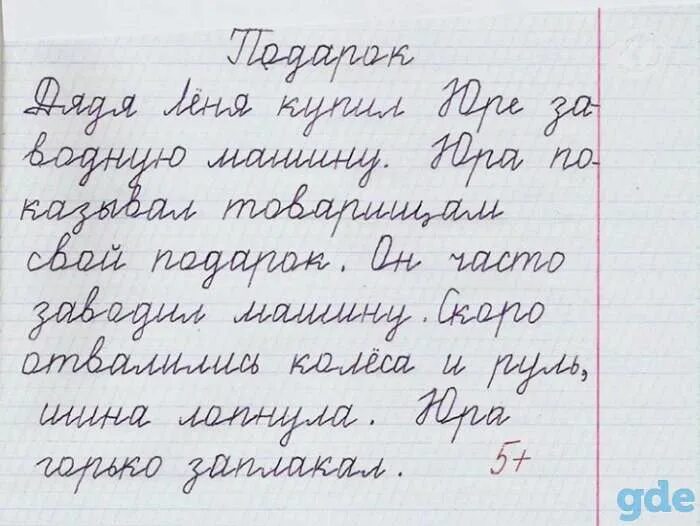 Подарок
Дядя Лёня купил Юре за-
водную машину. Юра по-
казывал товарищам
свой подарок. Он часто
заводил машину. Скоро
отвалились колёса и руль,
шина лопнула. Юра
горько заплакал. 5+
gde